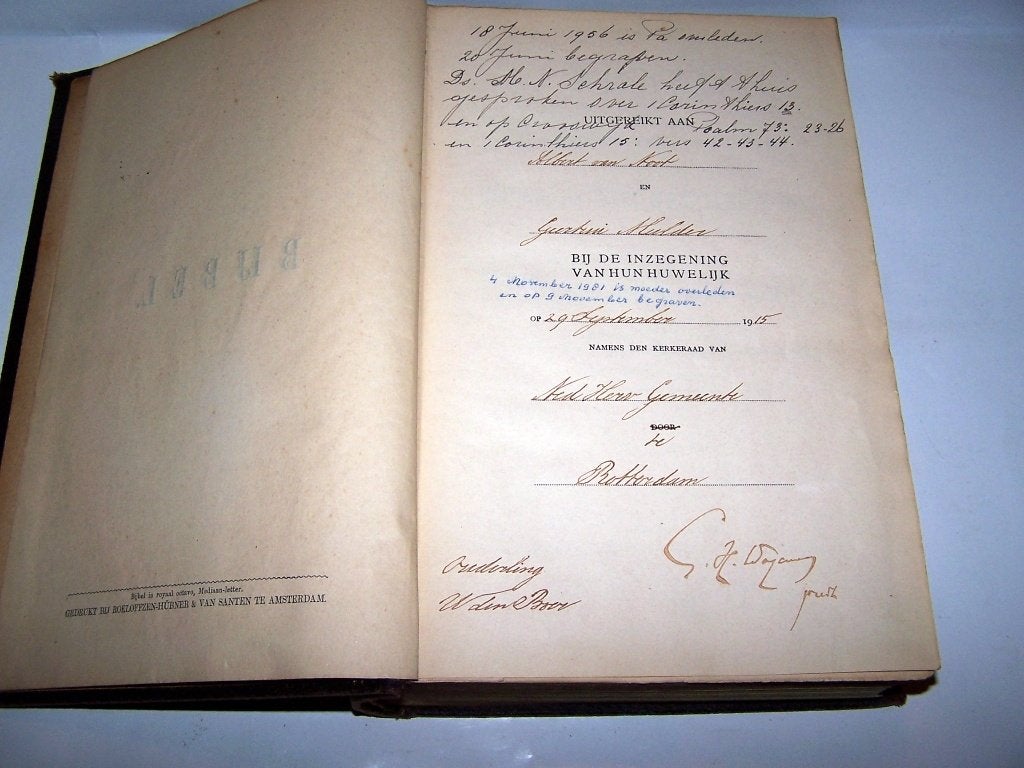 BIJBEL
Bijbel in royaal octavo, Mediaan-letter.
GEDRUKT BIJ ROELOFFZEN-HÜBNER & VAN SANTEN TE AMSTERDAM.
18 Juni 1956 is Pa overleden.
20 Juni begraven.
Ds. H. N. Schrale heeft thuis
gesproken over 1 Corinthiers 13.
UITGEREIKT AAN
en op Crooswijk Psalm 73: 23-26
en 1 Corinthiers 15: vers 42-43-44.
Albert van Noot
EN
Mulder
BIJ DE INZEGENING
VAN HUN HUWELIJK
4 November 1981 is moeder overleden
en op 9 November begraven.
OP 29 September 1915
NAMENS DEN KERKERAAD VAN
Ned Herv Gemeente
DOOR
te
Rotterdam
G. H.
Ouderling
W den Boer